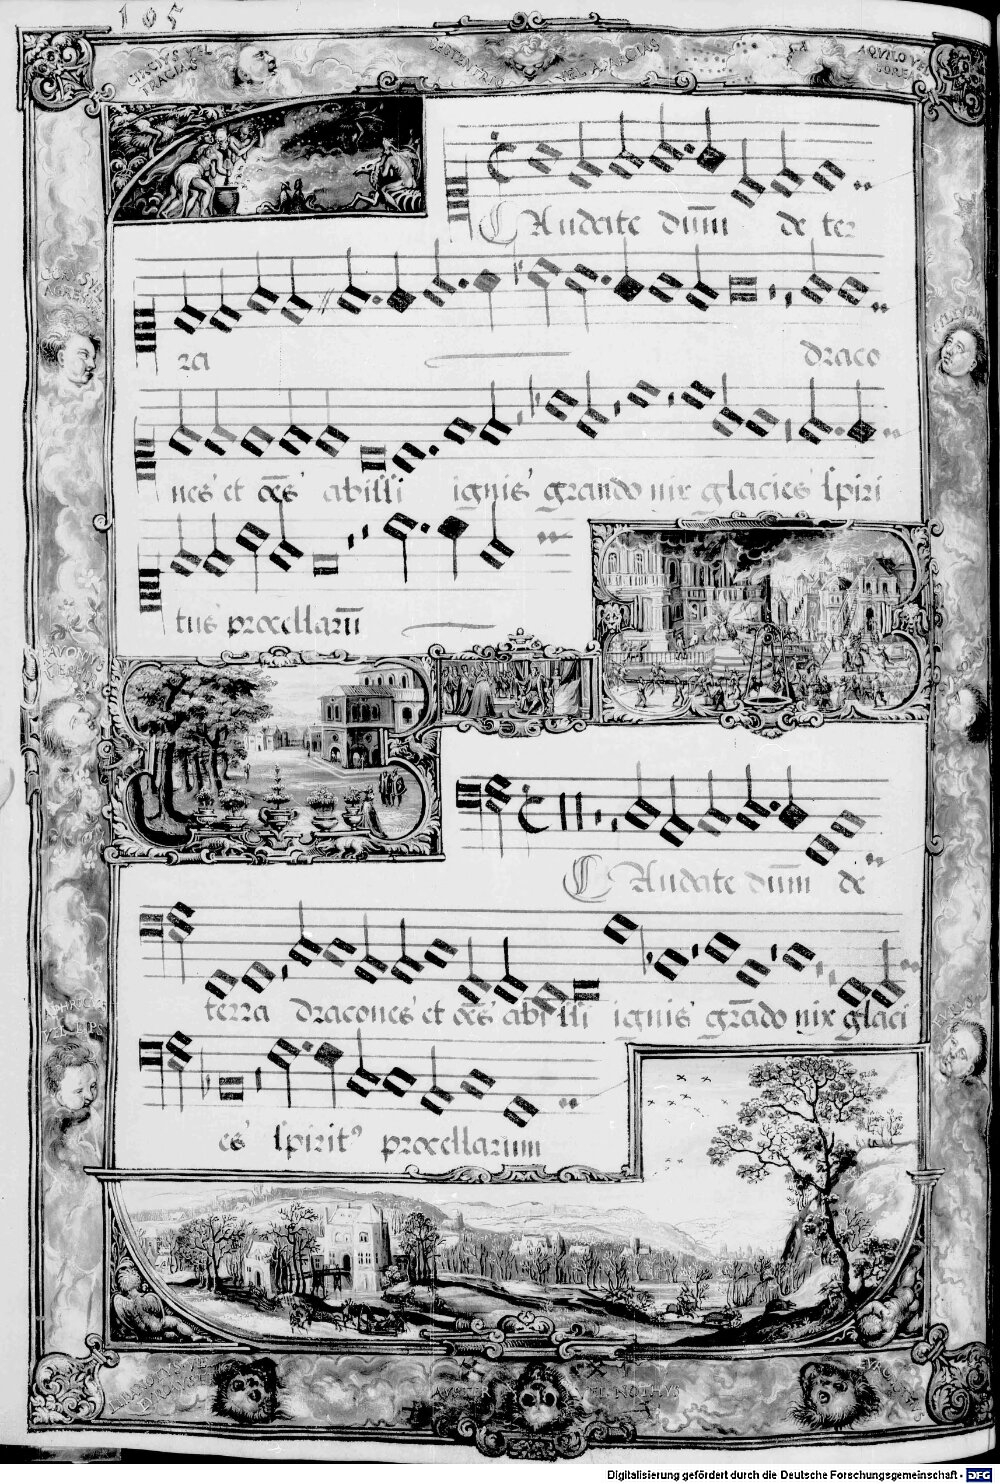 105
CIRCIVS VEL THRACIAS
SEPTENTRIO VEL APARCIAS
AQVILO VEL BOREAS
Laudate dn̄m de ter
ra draco
nes et oēs abissi ignis grando nix glacies spiri
tus procellarū
Laudate dn̄m de
terra dracones et oēs abissi ignis grādo nix glaci
es spirit⁹ procellarum
AVSTER VEL NOTHVS
Digitalisierung gefördert durch die Deutsche Forschungsgemeinschaft - DFG